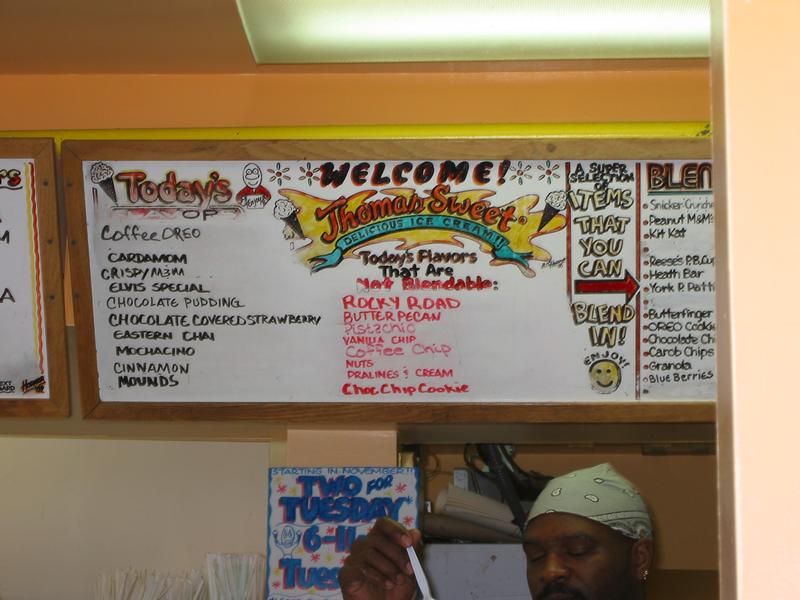 Today's
TOP
Coffee OREO
CARDAMOM
CRISPY M&M
ELVIS SPECIAL
CHOCOLATE PUDDING
CHOCOLATE COVERED STRAWBERRY
EASTERN CHAI
MOCHACINO
CINNAMON
MOUNDS
WELCOME!
Thomas Sweet
DELICIOUS ICE CREAM!!
Today's Flavors
That Are
Not Blendable:
ROCKY ROAD
BUTTER PECAN
Pistachio
VANILLA CHIP
Coffee Chip
NUTS
PRALINES & CREAM
Choc Chip Cookie
A SUPER
SELECTION
OF
ITEMS
THAT
YOU
CAN
BLEND
IN!
ENJOY!
BLEN
Snicker Crunch
Peanut M&M's
Kit Kat
Reese's P.B. Cu
Heath Bar
York P. Patti
Butterfinger
OREO Cooki
Chocolate Chi
Carob Chips
Granola
Blue Berries
STARTING IN NOVEMBER!!
TWO FOR
TUESDAY
6-11
Tues